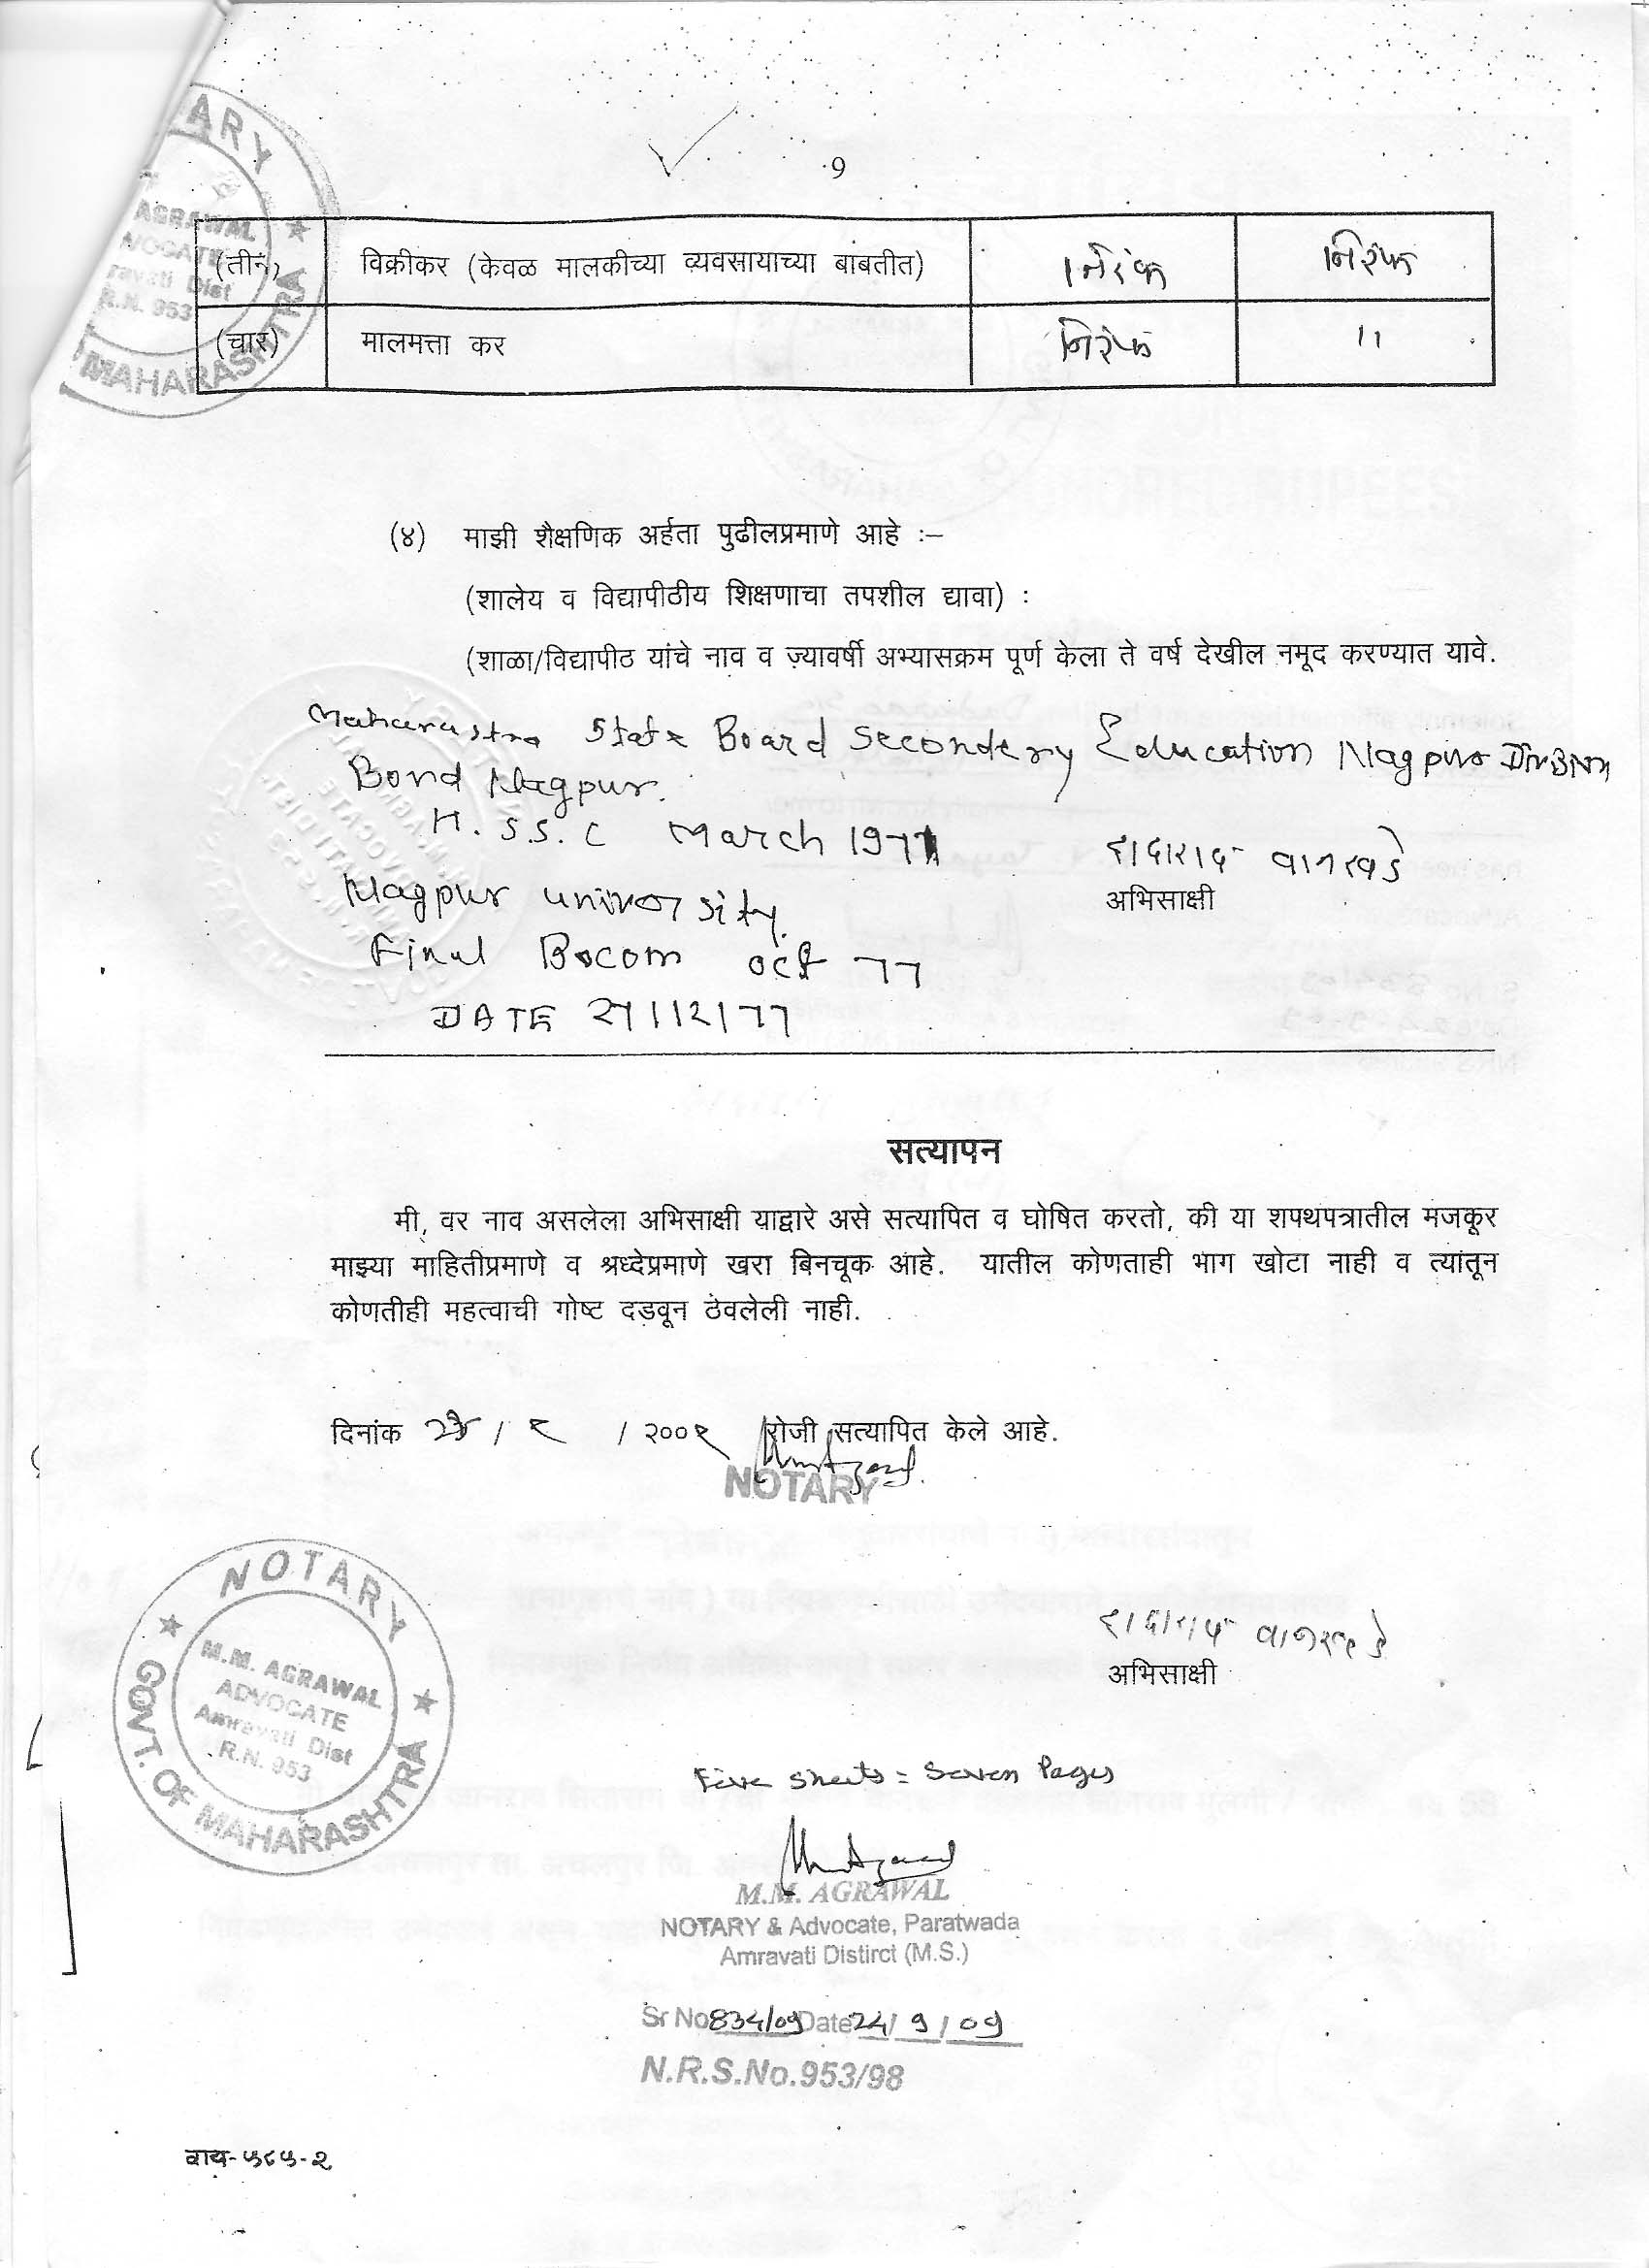 9
(तीन) विक्रीकर (केवळ मालकीच्या व्यवसायाच्या बाबतीत) निरंक निरंक
(चार) मालमत्ता कर निरंक "
(४) माझी शैक्षणिक अर्हता पुढीलप्रमाणे आहे :–
(शालेय व विद्यापीठीय शिक्षणाचा तपशील द्यावा) :
(शाळा/विद्यापीठ यांचे नाव व ज्यावर्षी अभ्यासक्रम पूर्ण केला ते वर्ष देखील नमूद करण्यात यावे.
Maharastra State Board Secondery Education Nagpur
Bord Nagpur.
H.S.S.C March
Nagpur University.
Final Bocom oct 77
DATE
वानखडे
अभिसाक्षी
सत्यापन
मी, वर नाव असलेला अभिसाक्षी याद्वारे असे सत्यापित व घोषित करतो, की या शपथपत्रातील मजकूर
माझ्या माहितीप्रमाणे व श्रध्देप्रमाणे खरा बिनचूक आहे. यातील कोणताही भाग खोटा नाही व त्यांतून
कोणतीही महत्वाची गोष्ट दडवून ठेवलेली नाही.
दिनांक / ९ / २००९ रोजी सत्यापित केले आहे.
NOTARY
NOTARY
M.M. AGRAWAL
ADVOCATE
Amravati Dist
R.N. 953
GOVT. OF MAHARASHTRA
वानखडे
अभिसाक्षी
Five sheets = Seven Pages
M.M. AGRAWAL
NOTARY & Advocate, Paratwada
Amravati Distirct (M.S.)
Sr No 834/09 Date 24/9/09
N.R.S.No.953/98
वाय-५८५-२